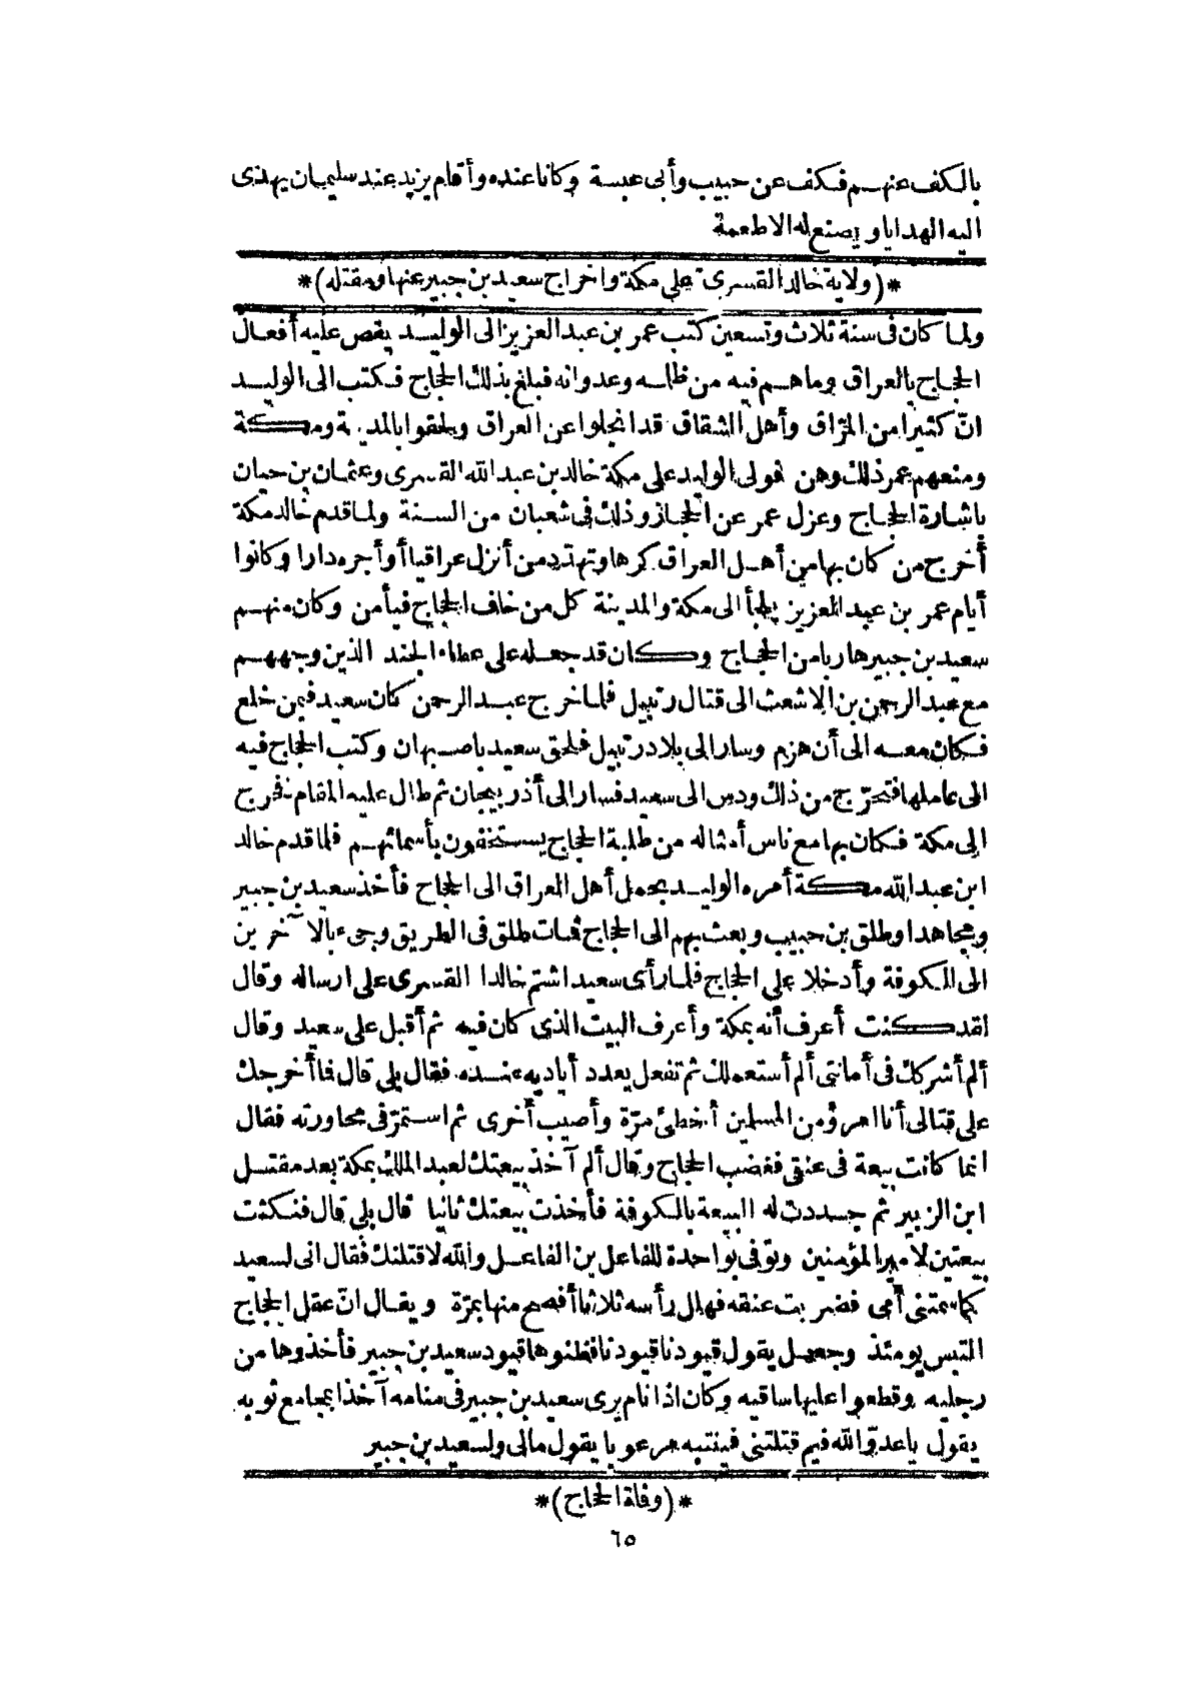 بالكف عنهم فكف عن حبيب وأبى عبسة وكانا عنده وأقام يزيد عند سليمان يهدى
اليه الهدايا ويصنع له الاطعمة
*(ولاية خالد القسرى على مكة واخراج سعيد بن جبير عنها ومقتله)*
ولما كان فى سنة ثلاث وتسعين كتب عمر بن عبد العزيز الى الوليد يقص عليه أفعال
الحجاج بالعراق وما هم فيه من ظلمه وعدوانه فبلغ بذلك الحجاج فكتب الى الوليد
انّ كثيرا من المرّاق وأهل الشقاق قد انجلوا عن العراق ولحقوا بالمدينة ومكة
ومنعهم عمر ذلك وهن فولى الوليد على مكة خالد بن عبد الله القسرى وعثمان بن حيان
باشارة الحجاج وعزل عمر عن الحجاز وذلك فى شعبان من السنة ولما قدم خالد مكة
أخرج من كان بها من أهل العراق كرها وتهدّد من أنزل عراقيا أو أجره دارا وكانوا
أيام عمر بن عبد العزيز يلجأ الى مكة والمدينة كل من خاف الحجاج فيأمن وكان منهم
سعيد بن جبير هاربا من الحجاج وكان قد جعله على عطاء الجند الذين وجههم
مع عبد الرحمن بن الاشعث الى قتال رتبيل فلما خرج عبد الرحمن كان سعيد فيمن خلع
فكان معه الى أن هزم وسار الى بلاد رتبيل فلحق سعيد باصبهان وكتب الحجاج فيه
الى عاملها فتحرّج من ذلك ودس الى سعيد فسار الى أذربيجان ثم طال عليه المقام فخرج
الى مكة فكان بها مع ناس أمثاله من طلبة الحجاج يستخفون بأسمائهم فلما قدم خالد
ابن عبد الله مكة أمره الوليد بحمل أهل العراق الى الحجاج فأخذ سعيد بن جبير
ومجاهدا وطلق بن حبيب وبعث بهم الى الحجاج فمات طلق فى الطريق وجىء بالآخرين
الى الكوفة وأدخلا على الحجاج فلما رأى سعيدا شتم خالدا القسرى على ارساله وقال
لقد كنت أعرف أنه بمكة وأعرف البيت الذى كان فيه ثم أقبل على سعيد وقال
ألم أشركك فى أمانتى ألم أستعملك ثم تفعل يعدد أياديه عنده فقال بلى قال فما أخرجك
على قتالى أنا امرؤ من المسلمين أخطئ مرّة وأصيب أخرى ثم استمرّ فى محاورته فقال
انما كانت بيعة فى عنقى فغضب الحجاج وقال ألم آخذ بيعتك لعبد الملك بمكة بعد مقتل
ابن الزبير ثم جددت له البيعة بالكوفة فأخذت بيعتك ثانيا قال بلى قال فنكثت
بيعتين لأمير المؤمنين وتوفى بواحدة للفاعل بن الفاعل والله لاقتلنك فقال انى لسعيد
كما سمتنى أمى فضربت عنقه فهلل رأسه ثلاثا أفصح منها بمرّة ويقال انّ عقل الحجاج
التبس يومئذ وجعل يقول قيودنا قيودنا فظنوها قيود سعيد بن جبير فأخذوها من
رجليه وقطعوا عليها ساقيه وكان اذا نام يرى سعيد بن جبير فى منامه آخذا بمجامع ثوبه
يقول يا عدوّ الله فيم قتلتنى فينتبه مرعوبا يقول مالى ولسعيد بن جبير
*(وفاة الحجاج)*
٦٥